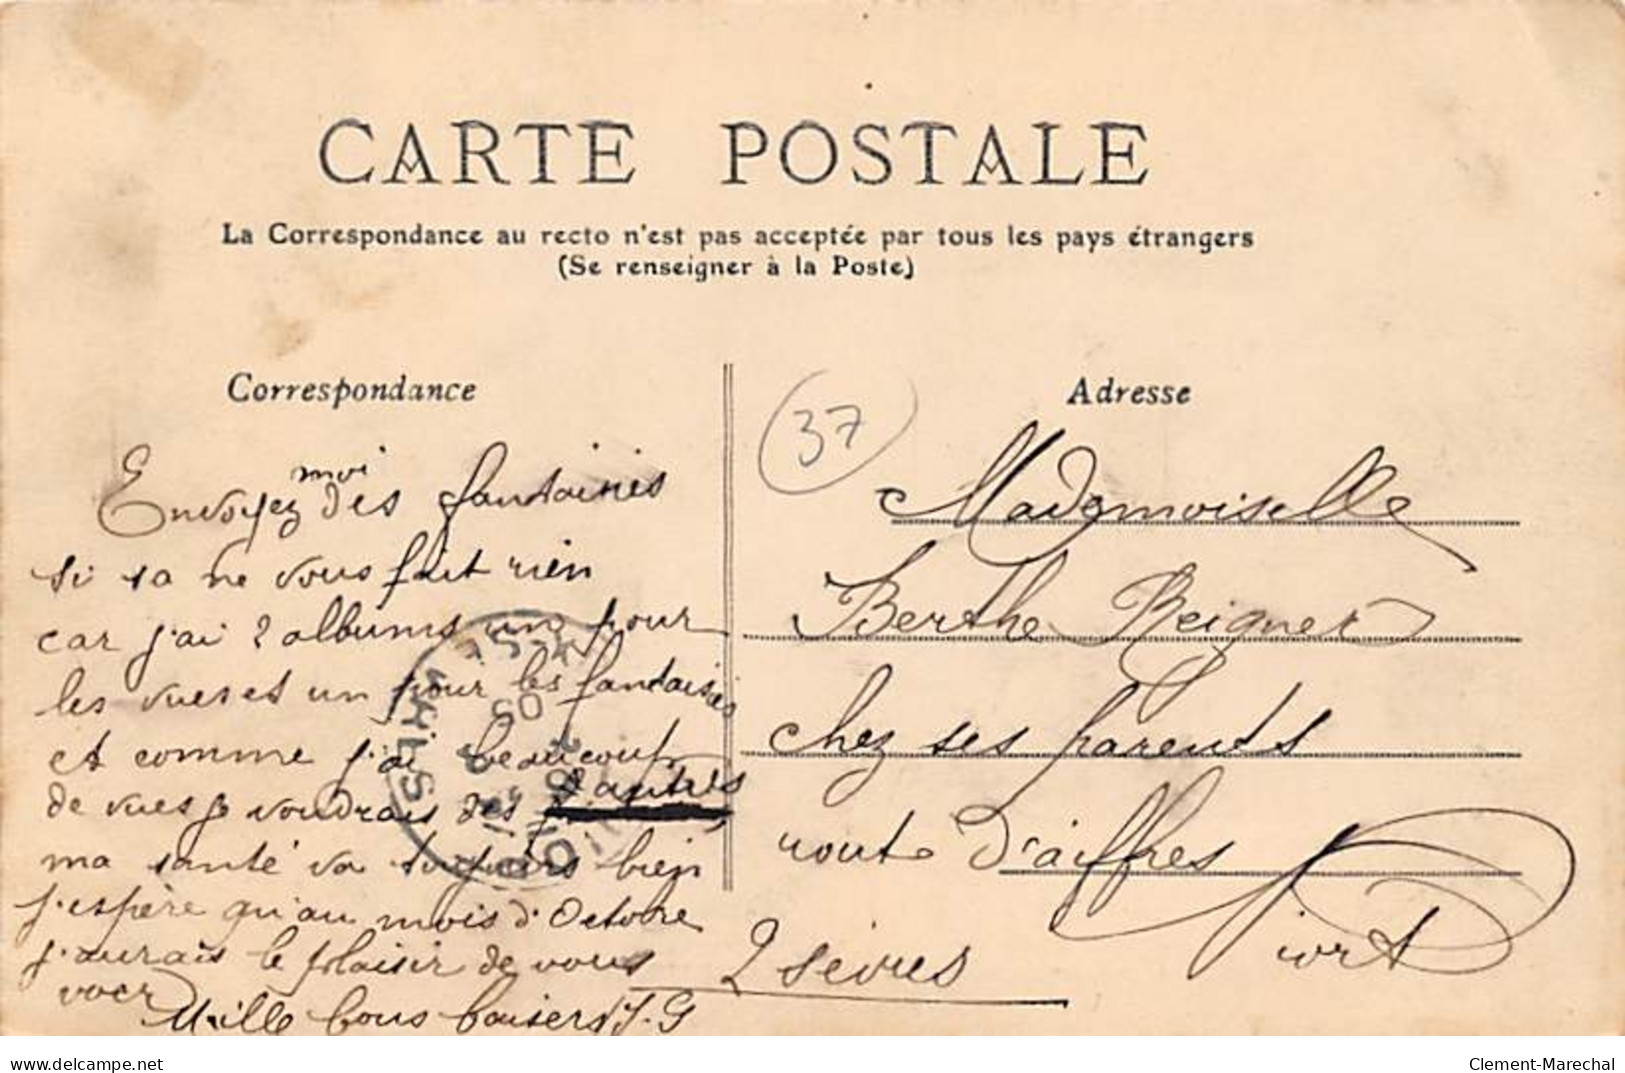 CARTE POSTALE
La Correspondance au recto n'est pas acceptée par tous les pays étrangers
(Se renseigner à la Poste)
Correspondance
moi
Envoyez des fantaisies
si sa ne vous fait rien
car j'ai 2 albums un pour
les vues et un pour les fantaisies
et comme j'ai beaucoup
de vues je voudrais des
d'autres
ma santé va toujours bien
j'espère qu'au mois d'Octobre
j'aurais le plaisir de vous
voir
Mille bons baisers J-G
37
Adresse
Mademoiselle
Berthe Reigner
chez ses parents
route d'aiffres
Niort
2 Sèvres
PARIS
delcampe.net
Clement-Marechal